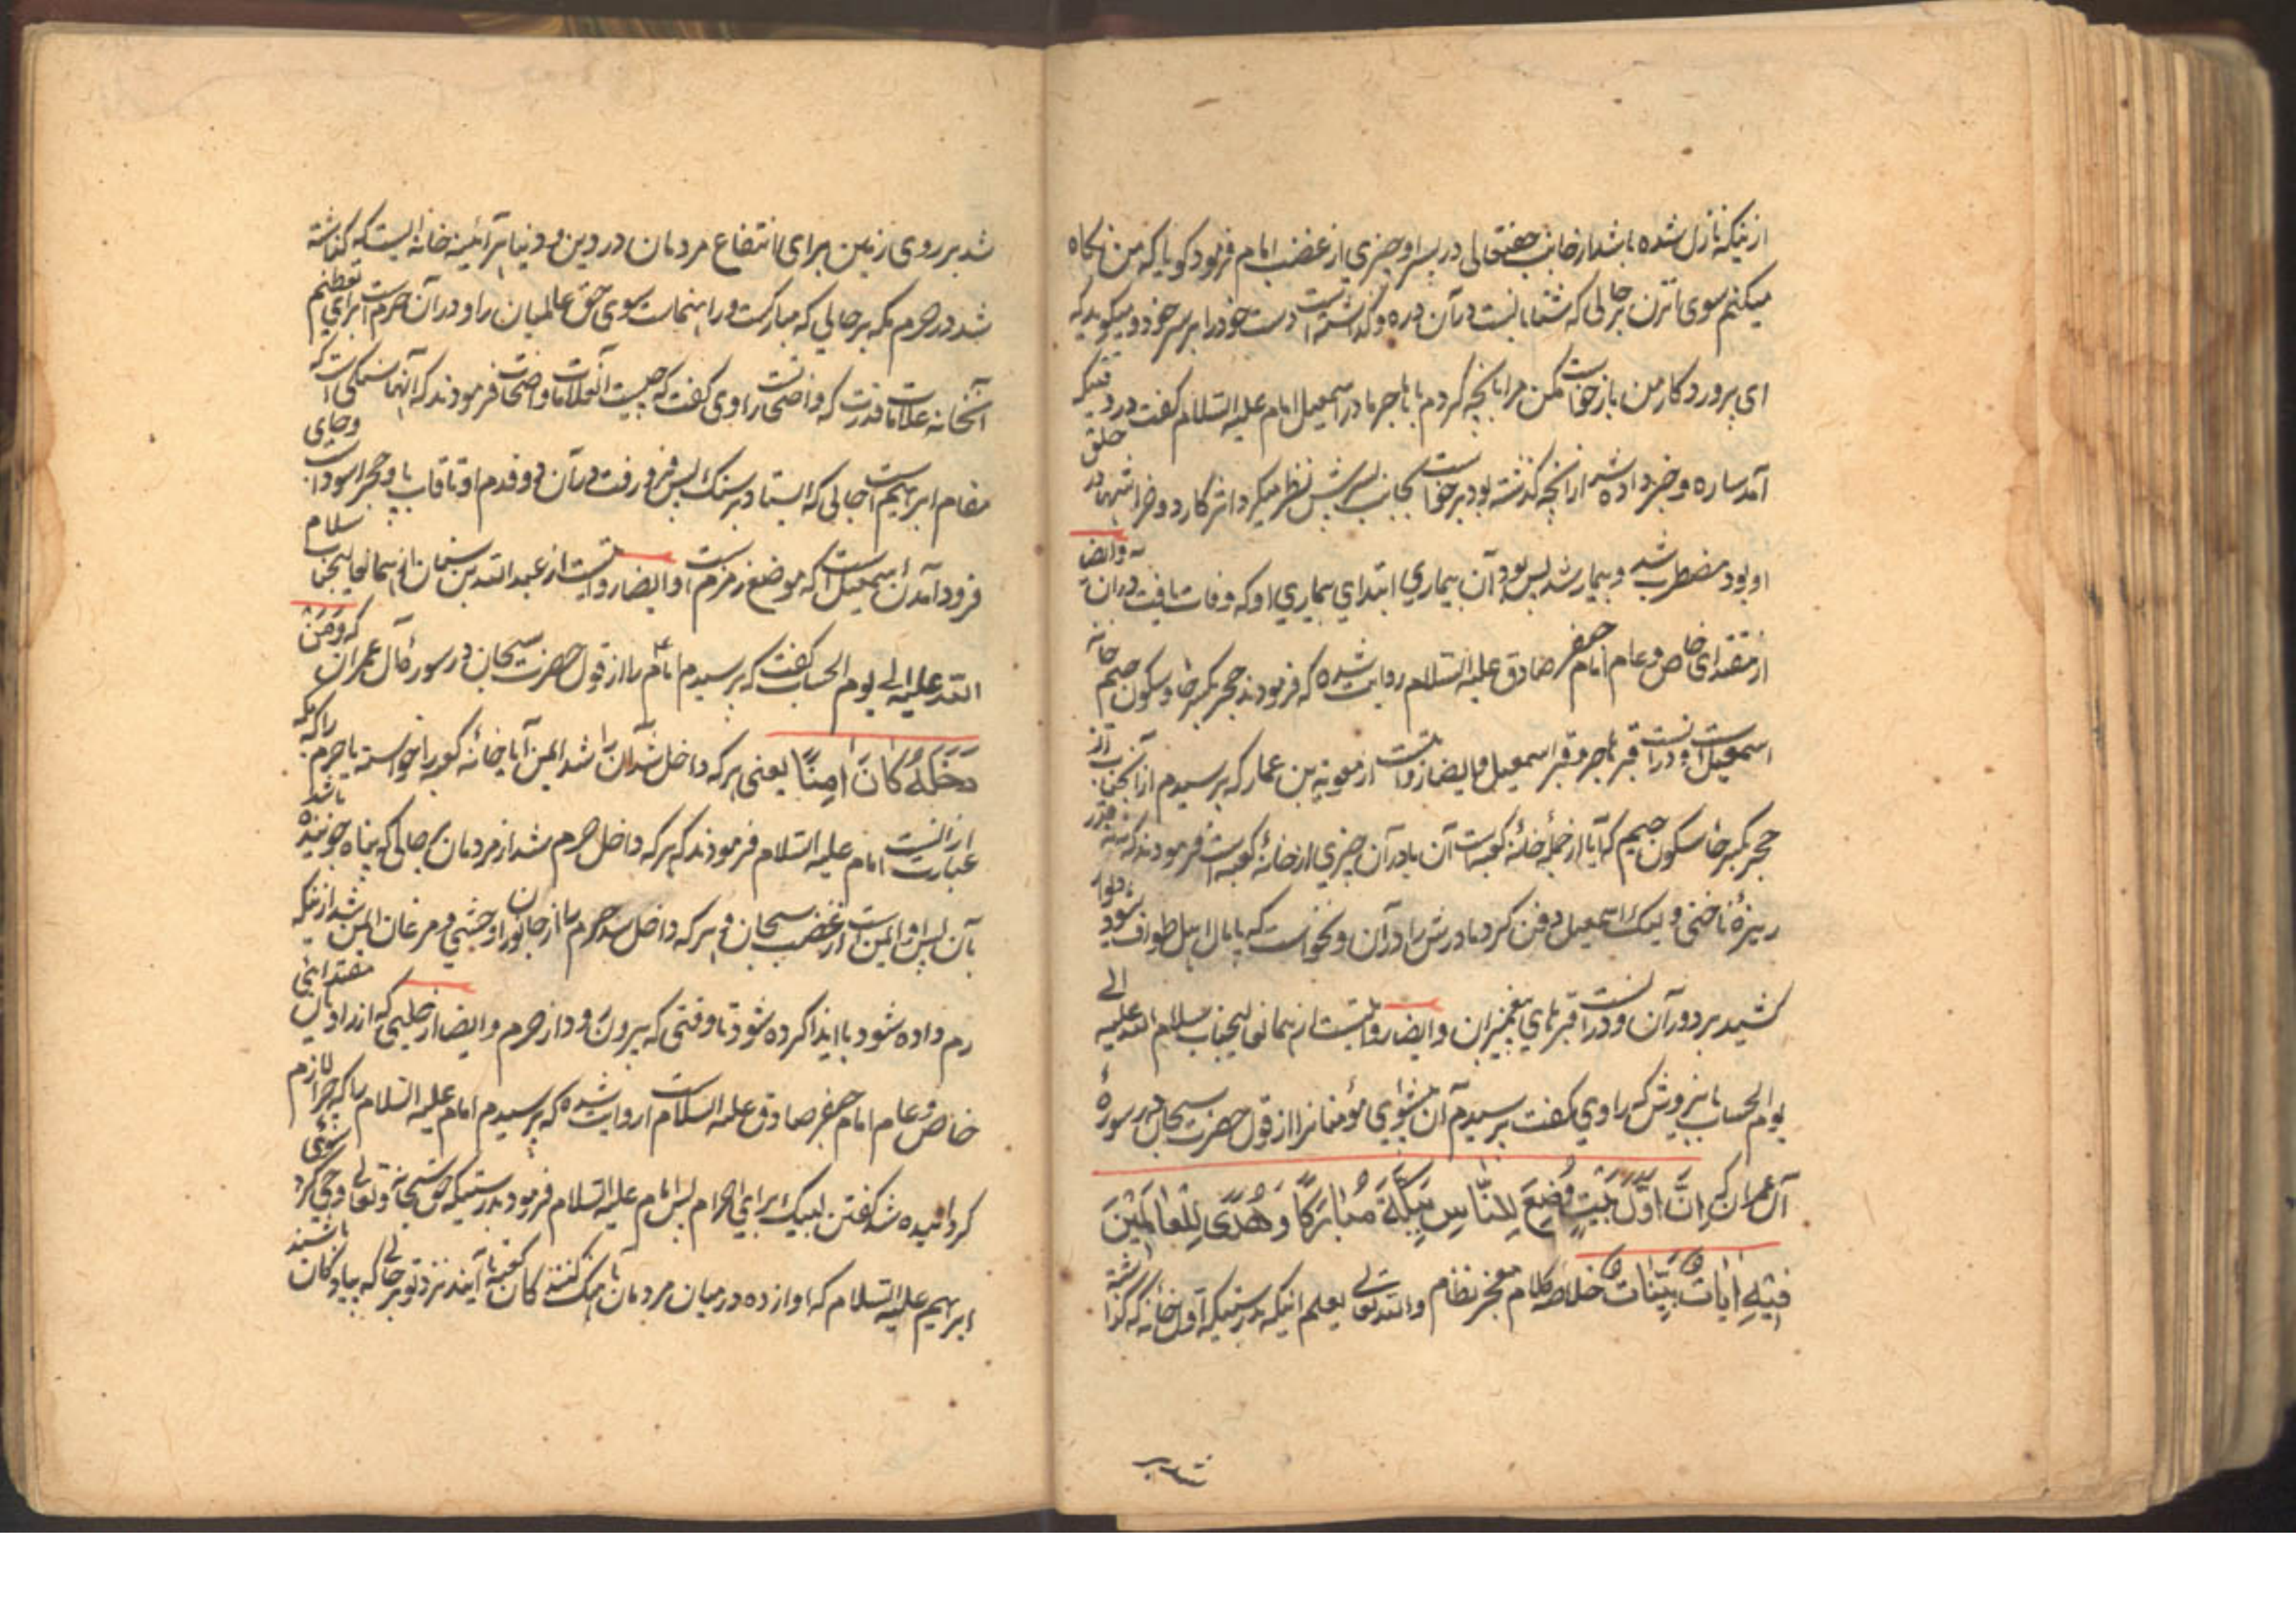 ازینکه نازل شده باشد از جانب حقتعالی در پسر او چیزی از غضب امام فرمود کویا که من نکاه
میکنم سوی آنزن بر حالی که شتابانست در آن دره و کذاشته است دست خود را بر سر خود و میکوید که
ای پرورد کار من باز خواست مکن مرا بانچه کردم با هاجر مادر اسمعیل امام علیه السلام کفت در وقتیکه
آمد ساره و خبر داده شد از انچه کذشته بود برخواست بجانب پسرش نظر میکرد اثر کارد و خراشها در حلق
او بود مضطرب شد و بیمار شد پس بود آن بیماری ابتدای بیماری او که وفات یافت در آن و ایضا
از مقتدای خاص و عام امام جعفر صادق علیه السلام روایت شده که فرمودند حجر بکسر حا و سکون جیم خانه
اسمعیل است و در انست قبر هاجر و قبر اسمعیل و ایضا روایتست از معویه بن عمار که پرسیدم از آنجناب از
حجر بکسر حا سکون جیم که آیا از جملهٔ خانهٔ کعبه است آن یا در آن چیزی از خانهٔ کعبه است فرمودند که نه نه قدر
ریزهٔ ناخنی و لیک اسمعیل دفن کرد مادرش را در آن و نخواست که پامال اهل طواف شود دیوار
کشید بر دور آن و در انست قبرهای پیغمبران و ایضا روایتست از همانعالیجناب سلام الله علیه الی
یوم الحساب که راوی کفت پرسیدم آن پیشوای مؤمنانرا از قول حضرت سبحان در سورهٔ
آل عمران که إنَّ أَوَّلَ بَيْتٍ وُضِعَ لِلنَّاسِ بِبَكَّةَ مُبَارَكًا وَهُدًى لِلْعَالَمِينَ
فِيْهِ اٰيَاتٌ بَيِّنَاتٌ خلاصه کلام معجز نظام والله تعالی یعلم اینکه بدرستیکه اول خانه که کذاشته
شد بر
شد بر روی زمین برای انتفاع مردمان در دین و دنیا هر آئینه خانه ایست که کذاشته
شد در حرم مکه بر حالی که مبارکست و راهنماست سوی حق عالمیان را و در آن حرمست برای تعظیم
آنخانه علامات قدرت که واضحست راوی کفت که چیست آنعلامات واضحات فرمودند که آنها سنکی است که
مقام ابرهیم است جائی که ایستاد بر سنک پس فرو رفت در آن دو قدم او تا قاب پا و حجر اسود است و جای
فرود آمدن اسمعیل است که موضع زمزم است و ایضا روایتست از عبد الله بن سنان از همانعالیجناب سلام
الله علیه الی یوم الحساب کفت که پرسیدم امام را از قول حضرت سبحان در سورهٔ آل عمران که وَمَنْ
دَخَلَهُ كَانَ اٰمِنًا یعنی هر که داخل شد آن را شد ایمن آیا خانهٔ کعبه را خواسته یا حرم را که مکه
عبارت از انست امام علیه السلام فرمودند که هر که داخل حرم شد از مردمان بر حالی که پناه جوینده باشد
بآن پس او ایمن است از غضب سبحان و هر که داخل شد حرم را از جانوران وحشی و مرغان ایمن شد از اینکه
رم داده شود یا ایذا کرده شود تا وقتی که بیرون رود از حرم و ایضا از حلبی که از راویان مقتدائی
خاص و عام امام جعفر صادق علیه السلام است روایت شده که پرسیدم امام علیه السلام را که چرا لازم
کردانیده شد کفتن لبیک برای احرام پس امام علیه السلام فرمود بدرستیکه حق سبحانه و تعالی وحی کرد سوی
ابرهیم علیه السلام که آواز ده در میان مردمان بآهنک کنند کان کعبه تا آیند نزد تو بر حالی که پیاد کان باشند